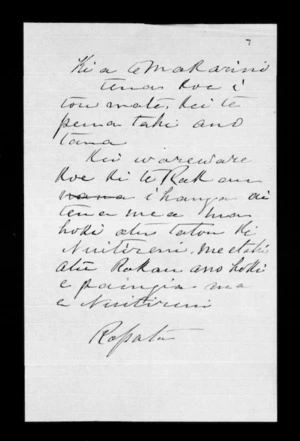 7
Kia te Makarini
tena koe i
tou mate. kei te
pena taki ano
tana
Kei wareware
koe ki te Rakau
nana i hanga ai
tena mea ma
hoki atu tatou ki
Nuitireni. me etahi
atu Rakau ano hoki
e paingia ana
e Nuitireni
Ropata